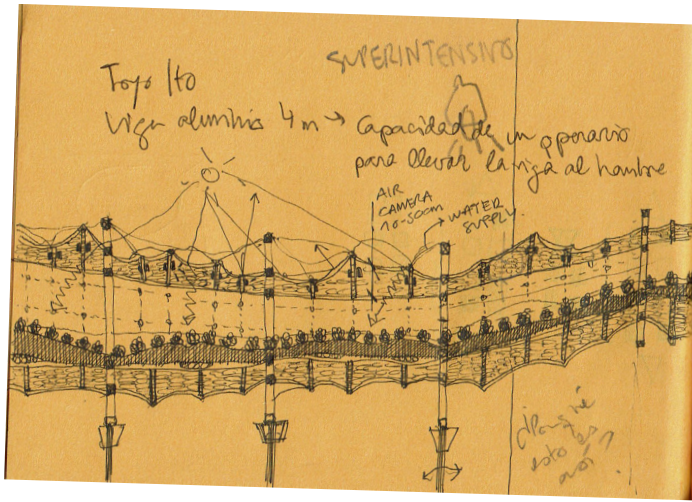 SUPERINTENSIVO
Toyo Ito
Viga aluminio 4 m → Capacidad de un operario
para llevar la viga al hombro
AIR
CAMERA
10-50cm
WATER
SUPPLY
esto es